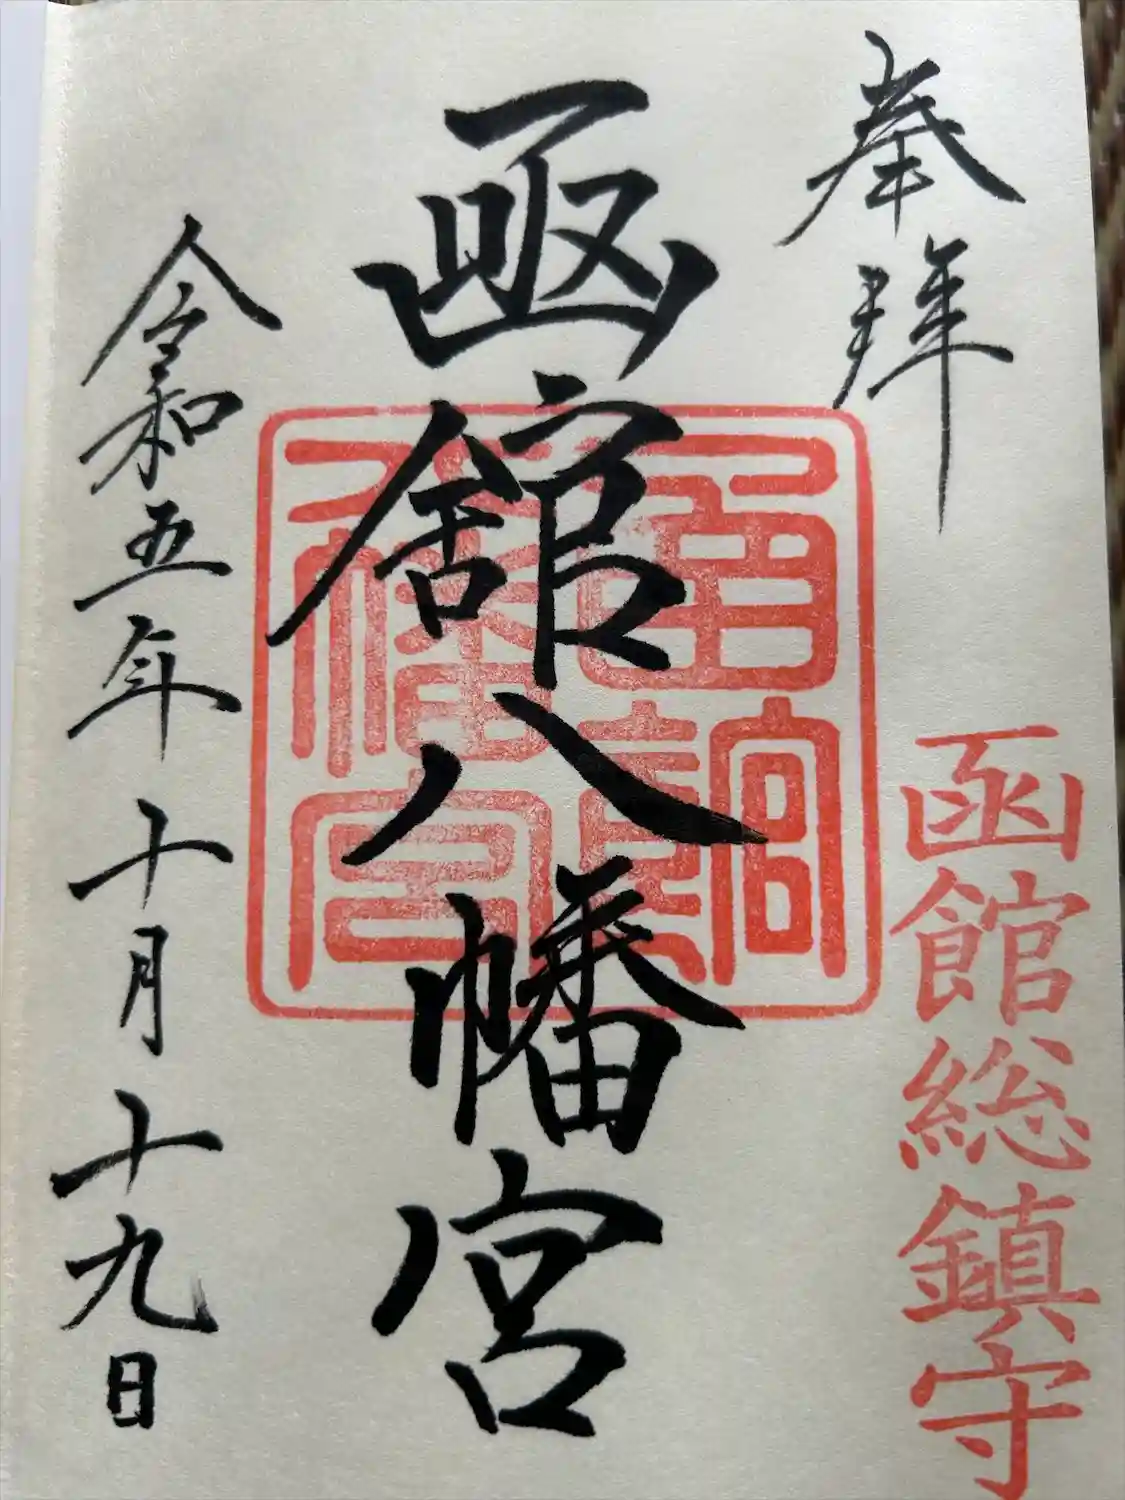 奉拝
函館総鎮守
函館八幡宮
令和五年十月十九日